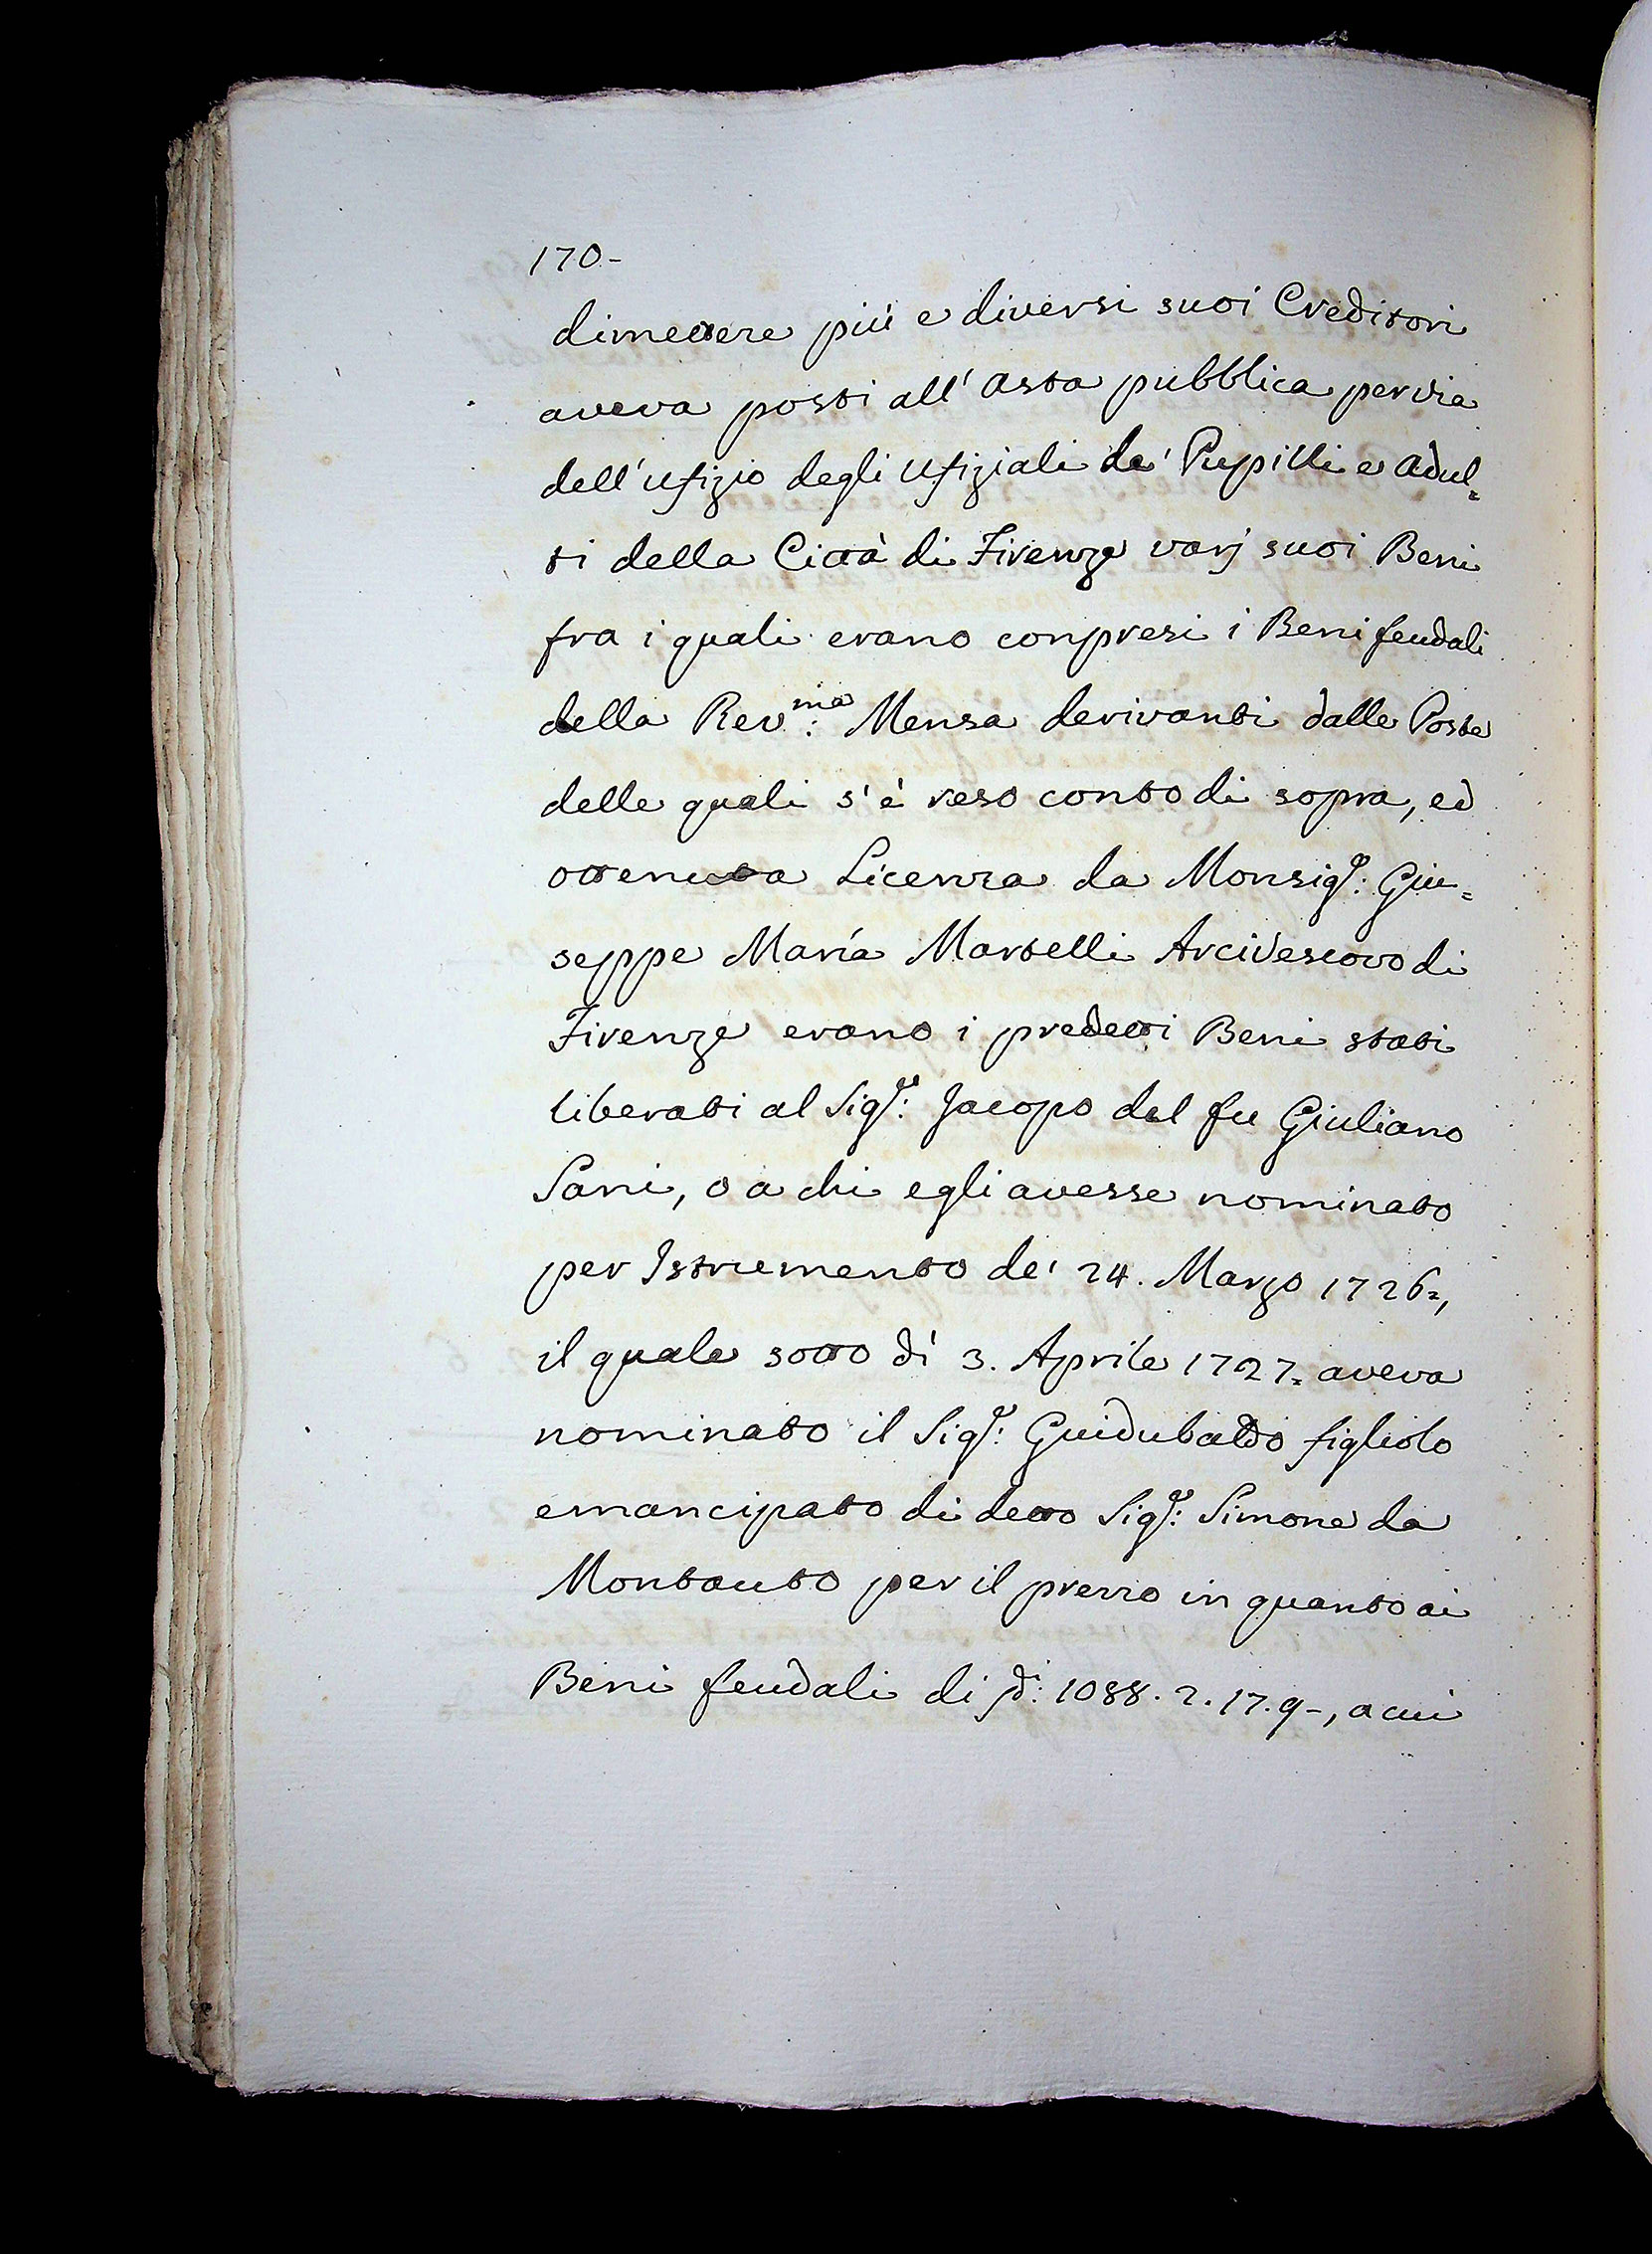 170.-
dimettere più e diversi suoi Creditori
aveva posti all'asta pubblica per via
dell'ufizio degli ufiziali de' Pupilli e adul=
ti della Città di Firenze varj suoi Beni
fra i quali erano conpresi i Beni feudali
della Rev:ma Mensa derivanti dalle Poste
delle quali s'è reso conto di sopra, ed
ottenuta Licenza da Monsigr: Giu=
seppe Maria Martelli Arcivescovo di
Firenze erano i predetti Beni stati
liberati al Sigr: Jacopo del fu Giuliano
Sani, o a chi egli avesse nominato
per Istrumento de' 24. Marzo 1726=,
il quale sotto dì 3. Aprile 1727= aveva
nominato il Sigr: Guidubaldo figliolo
emancipato di detto Sigr: Simone da
Montauto per il prezzo in quanto ai
Beni feudali di di: 1088. 2. 17. 9-, a cui